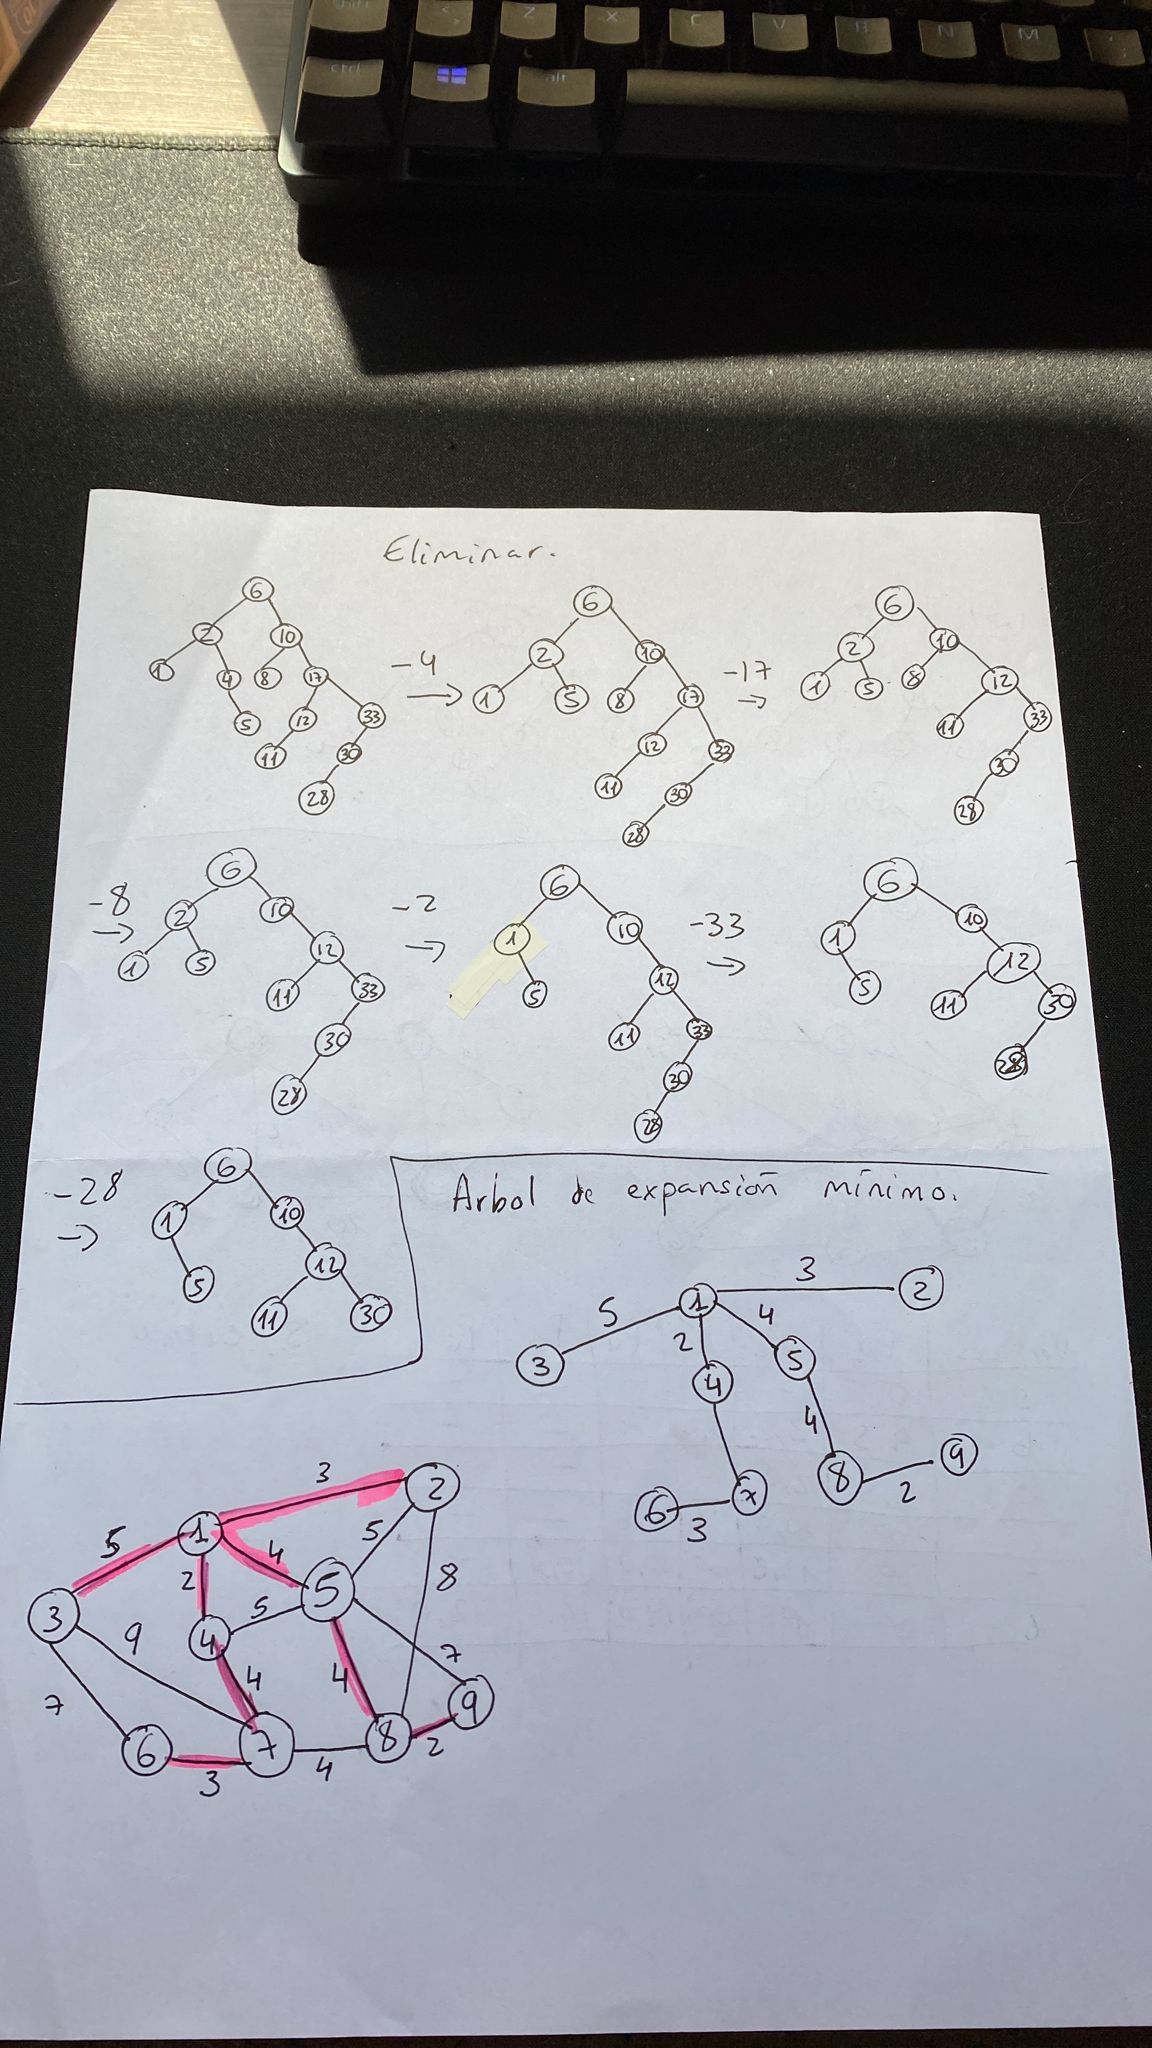 shift < Z X C V B N M ;
ctrl alt
Eliminar.
6
2 10
1 4 8 17
5 12 33
11 30
28
-4
→
6
2 10
1 5 8 17
12 33
11 30
28
-17
→
6
2 10
1 5 8 12
11 33
30
28
-8
→
6
2 10
1 5 12
11 33
30
28
-2
→
6
1 10
5 12
11 33
30
28
-33
→
6
1 10
5 12
11 30
28
-28
→
6
1 10
5 12
11 30
Arbol de expansión mínimo.
3
5 1 4 2
3 2 5
4 4
6 7 8 9
3 2
3 2
5 1 4 5
2 5 8
3 9 4 5
7 4 4 7
9
6 7 8 2
3 4